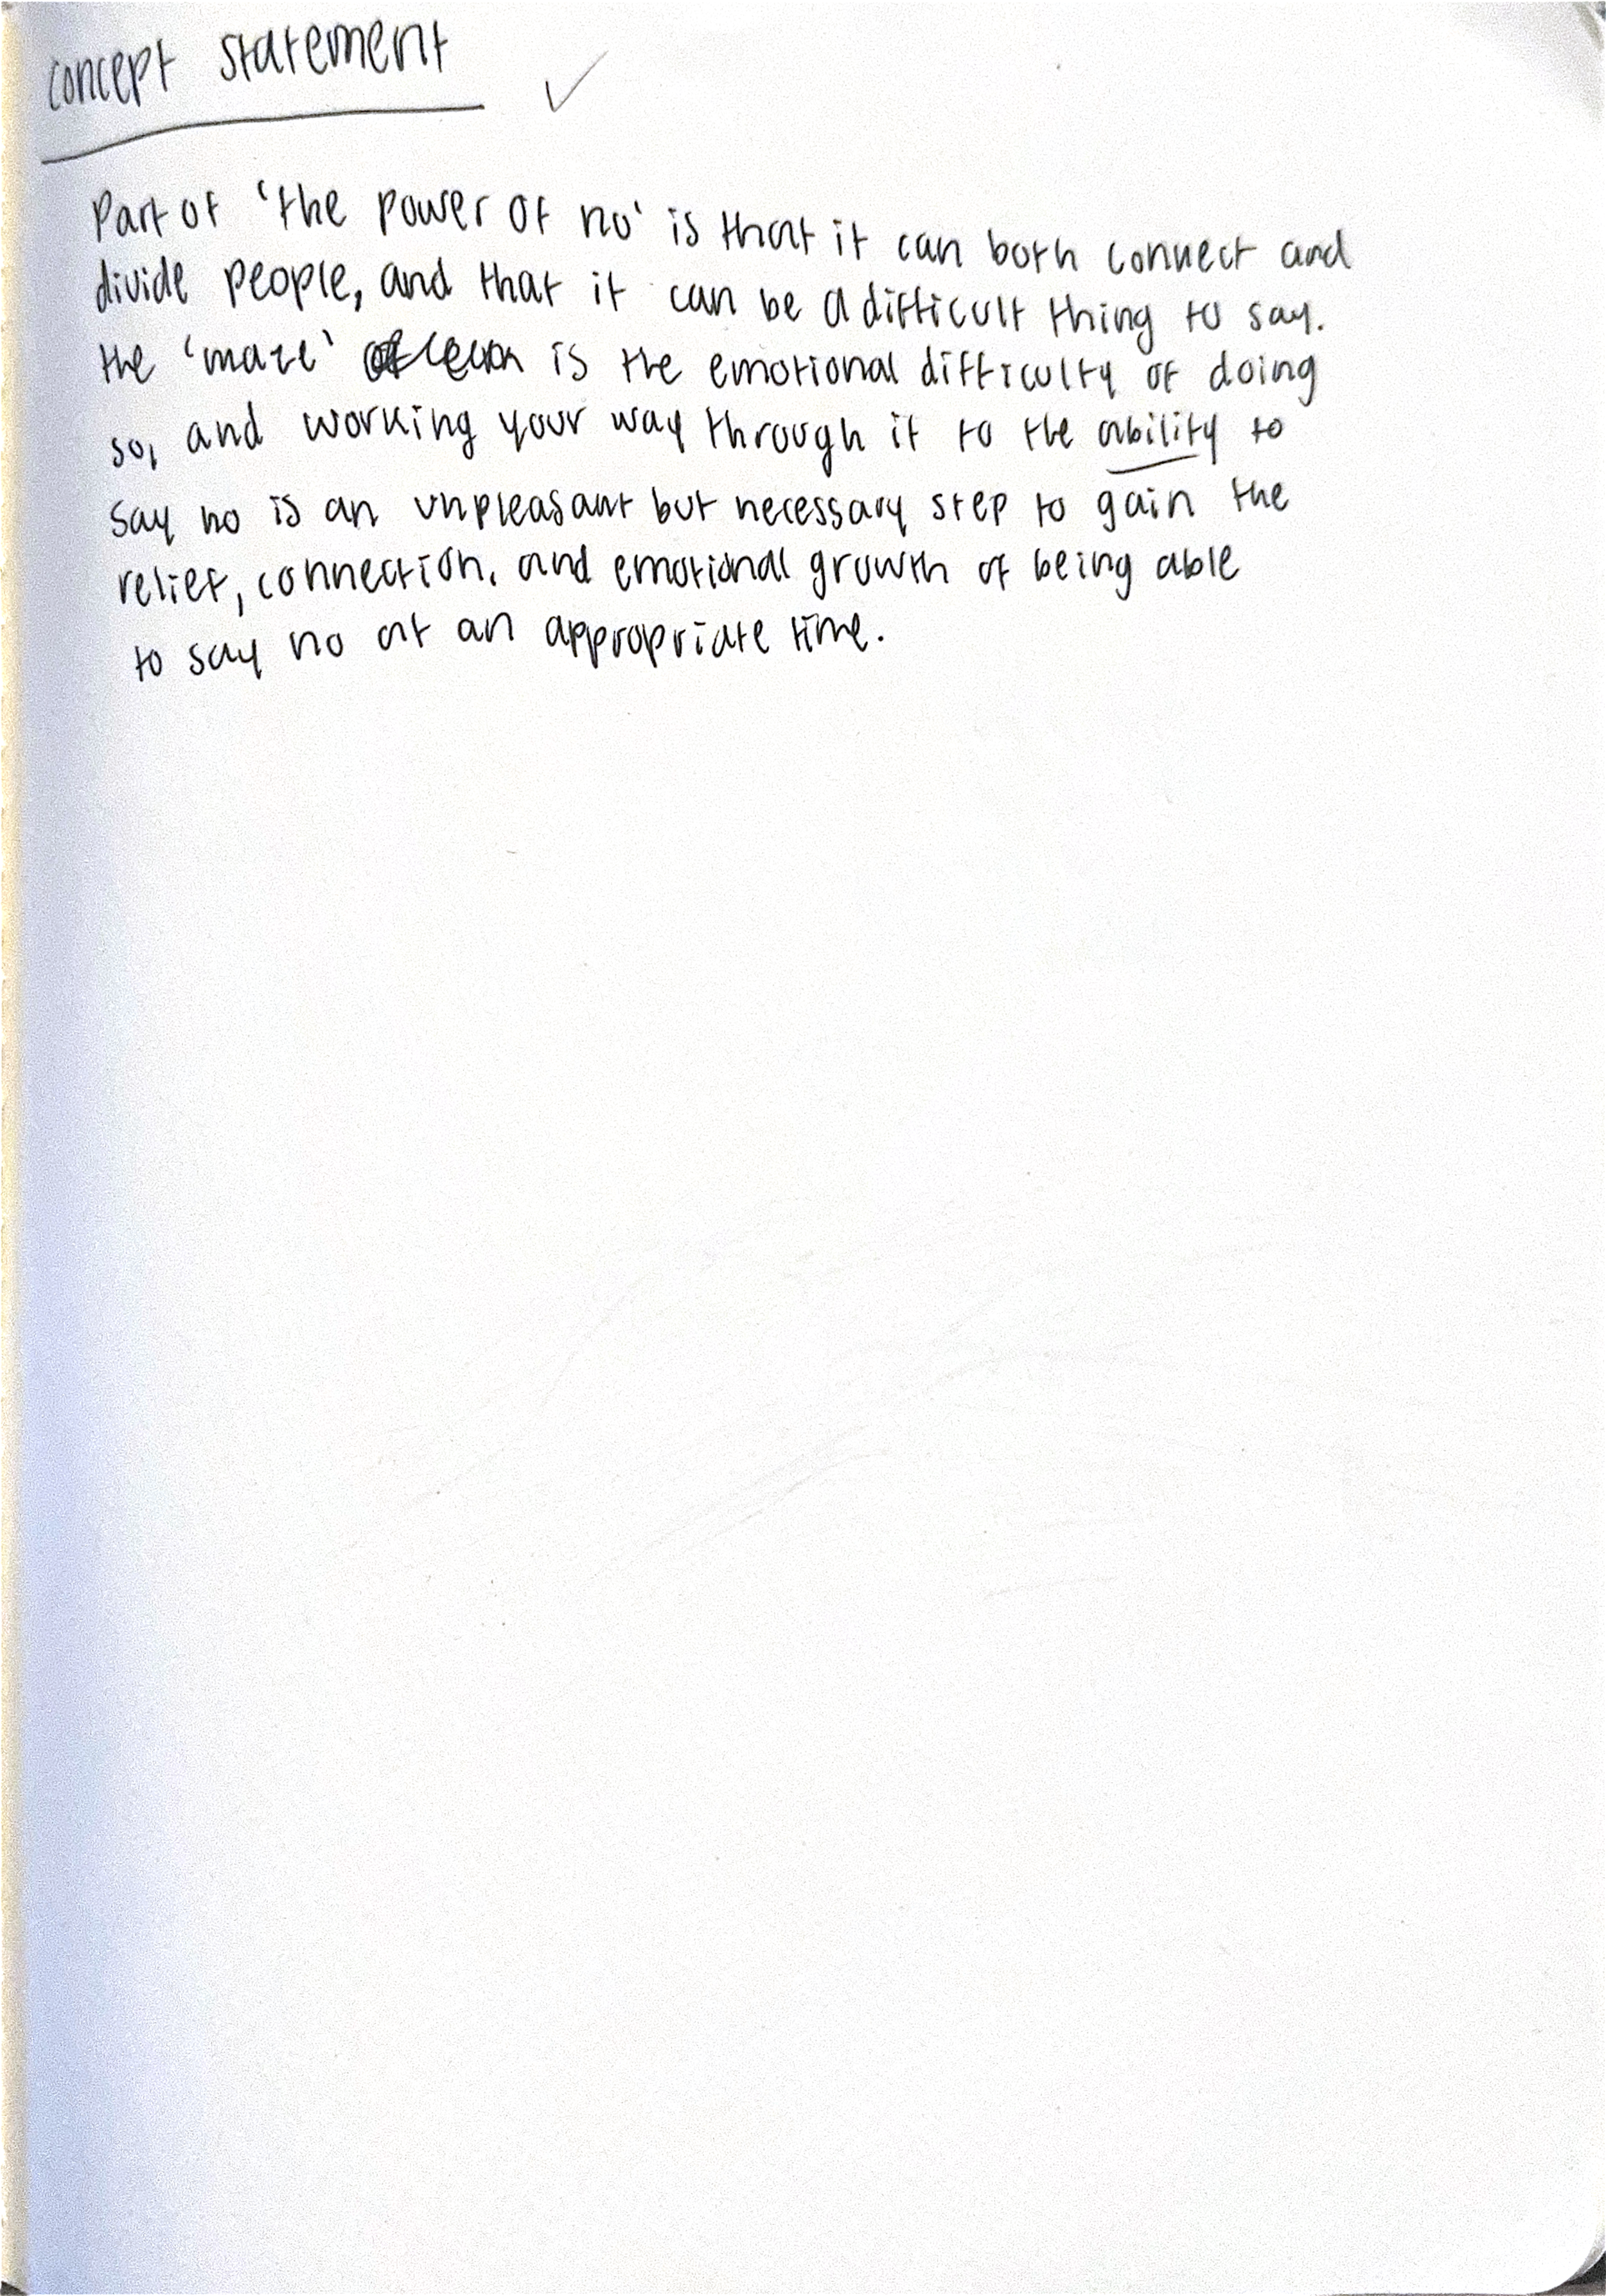 concept statement ✓
Part of 'the power of no' is that it can both connect and
divide people, and that it can be a difficult thing to say.
the 'maze' is the emotional difficulty of doing
so, and working your way through it to the ability to
say no is an unpleasant but necessary step to gain the
relief, connection, and emotional growth of being able
to say no at an appropriate time.